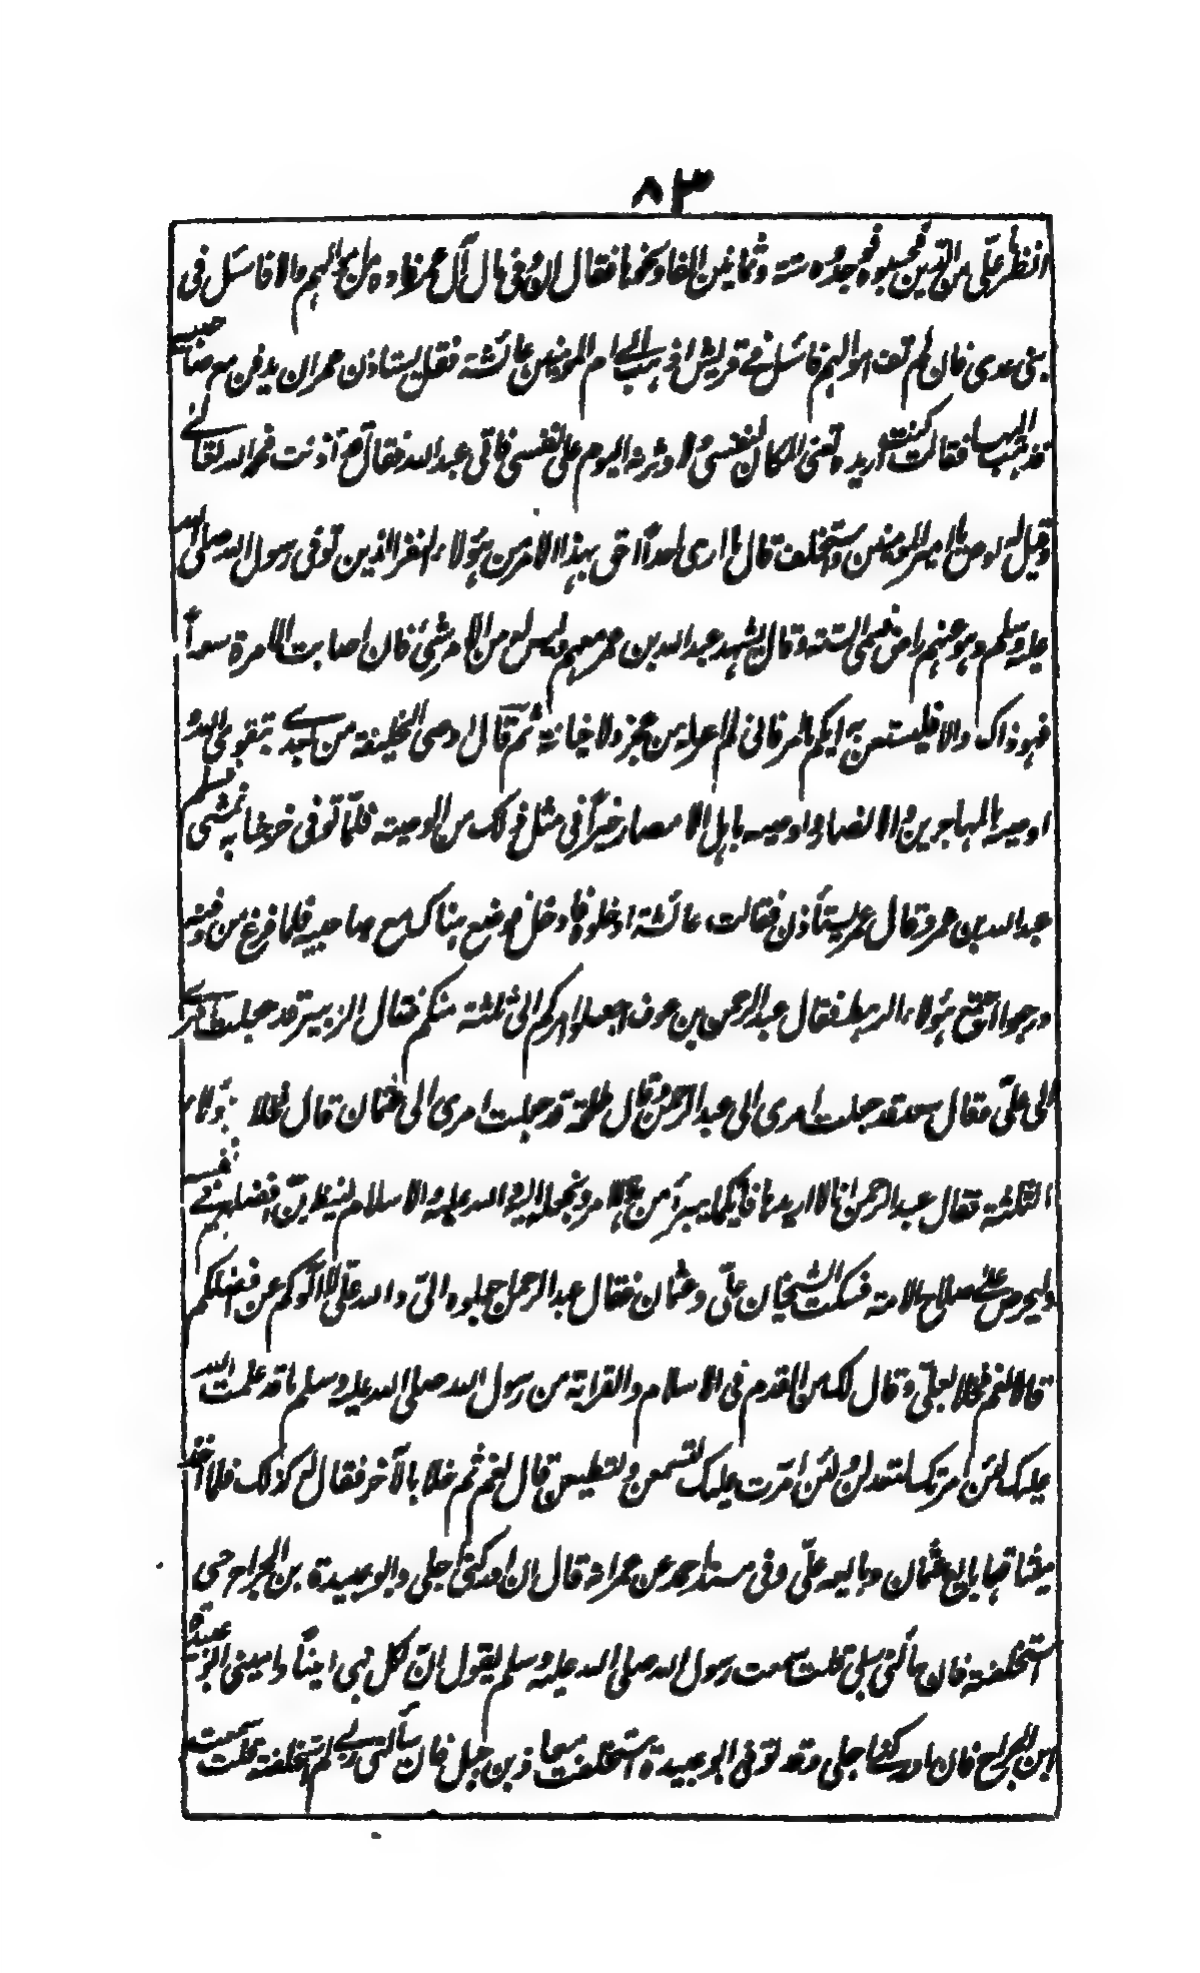 ٨٣
انظر ما علیّ من الدین فحسبوه فوجدوه ستة وثمانین الفا ونحوها فقال ان وفی مال آل عمر فاده من اموالهم والا فاسئل فی
بنی عدی فان لم تف اموالهم فاسئل فی قریش اذهب الی ام المؤمنین عائشة فقل یستاذن عمر ان یدفن مع صاحبیه
فذهب الیها فقالت کنت اریده تعنی المکان لنفسی ولاوثرنه الیوم علی نفسی فاتی عبد الله فقال قد اذنت فحمد الله تعالی
وقیل له اوص یا امیر المؤمنین واستخلف قال ما اری احداً احق بهذا الامر من هؤلاء النفر الذین توفی رسول الله صلی الله
علیه وسلم وهو عنهم راض فسمی الستة وقال یشهد عبد الله بن عمر معهم ولیس له من الامر شیٔ فان اصابت الامرة سعداً
فهو ذاک والا فلیستعن به ایکم ما امر فانی لم اعزله من عجز ولا خیانة ثم قال اوصی الخلیفة من بعدی بتقوی الله و
اوصیه بالمهاجرین والانصار واوصیه باهل الامصار خیراً فی مثل ذلک من الوصیة فلمّا توفی خرجنا به نمشی فسلم
عبد الله بن عمر وقال عمر یستأذن فقالت عائشة ادخلوه فادخل فوضع هناک مع صاحبیه فلما فرغ من دفنه
ورجعوا اجتمع هؤلاء الرهط فقال عبد الرحمن بن عوف اجعلوا امرکم الی ثلثة منکم فقال الزبیر قد جعلت امری
الی علیّ وقال سعد قد جعلت امری الی عبد الرحمن وقال طلحة قد جعلت امری الی عثمان قال فخلا هؤلاء
الثلثة فقال عبد الرحمن انا لا اریدها فایکما یبرأ من هذا الامر ونجعله الیه والله علیه والاسلام لینظرنّ افضلهم فی نفسه
ولیحرص علی صلاح الامة فسکت الشیخان علیّ وعثمان فقال عبد الرحمن اجعلوه الیّ والله علیّ لا آلوکم عن افضلکم
قالا نعم فخلا بعلیّ وقال لک من القدم فی الاسلام والقرابة من رسول الله صلی الله علیه وسلم ما قد علمت الله
علیک لئن امرتک لتعدلن ولئن امّرت علیک لتسمعن ولتطیعن قال نعم ثم خلا بالآخر فقال له کذلک فلما اخذ
میثاقهما بایع عثمان وبایعه علیّ وفی مسند احمد عن عمر انه قال ان ادرکنی اجلی وابو عبیدة بن الجراح حی
استخلفته فان سألنی ربی قلت سمعت رسول الله صلی الله علیه وسلم یقول ان لکل نبی امیناً وامینی ابو عبیدة
ابن الجراح فان ادرکنی اجلی وقد توفی ابو عبیدة استخلفت معاذ بن جبل فان سألنی ربی لم استخلفته قلت سمعت